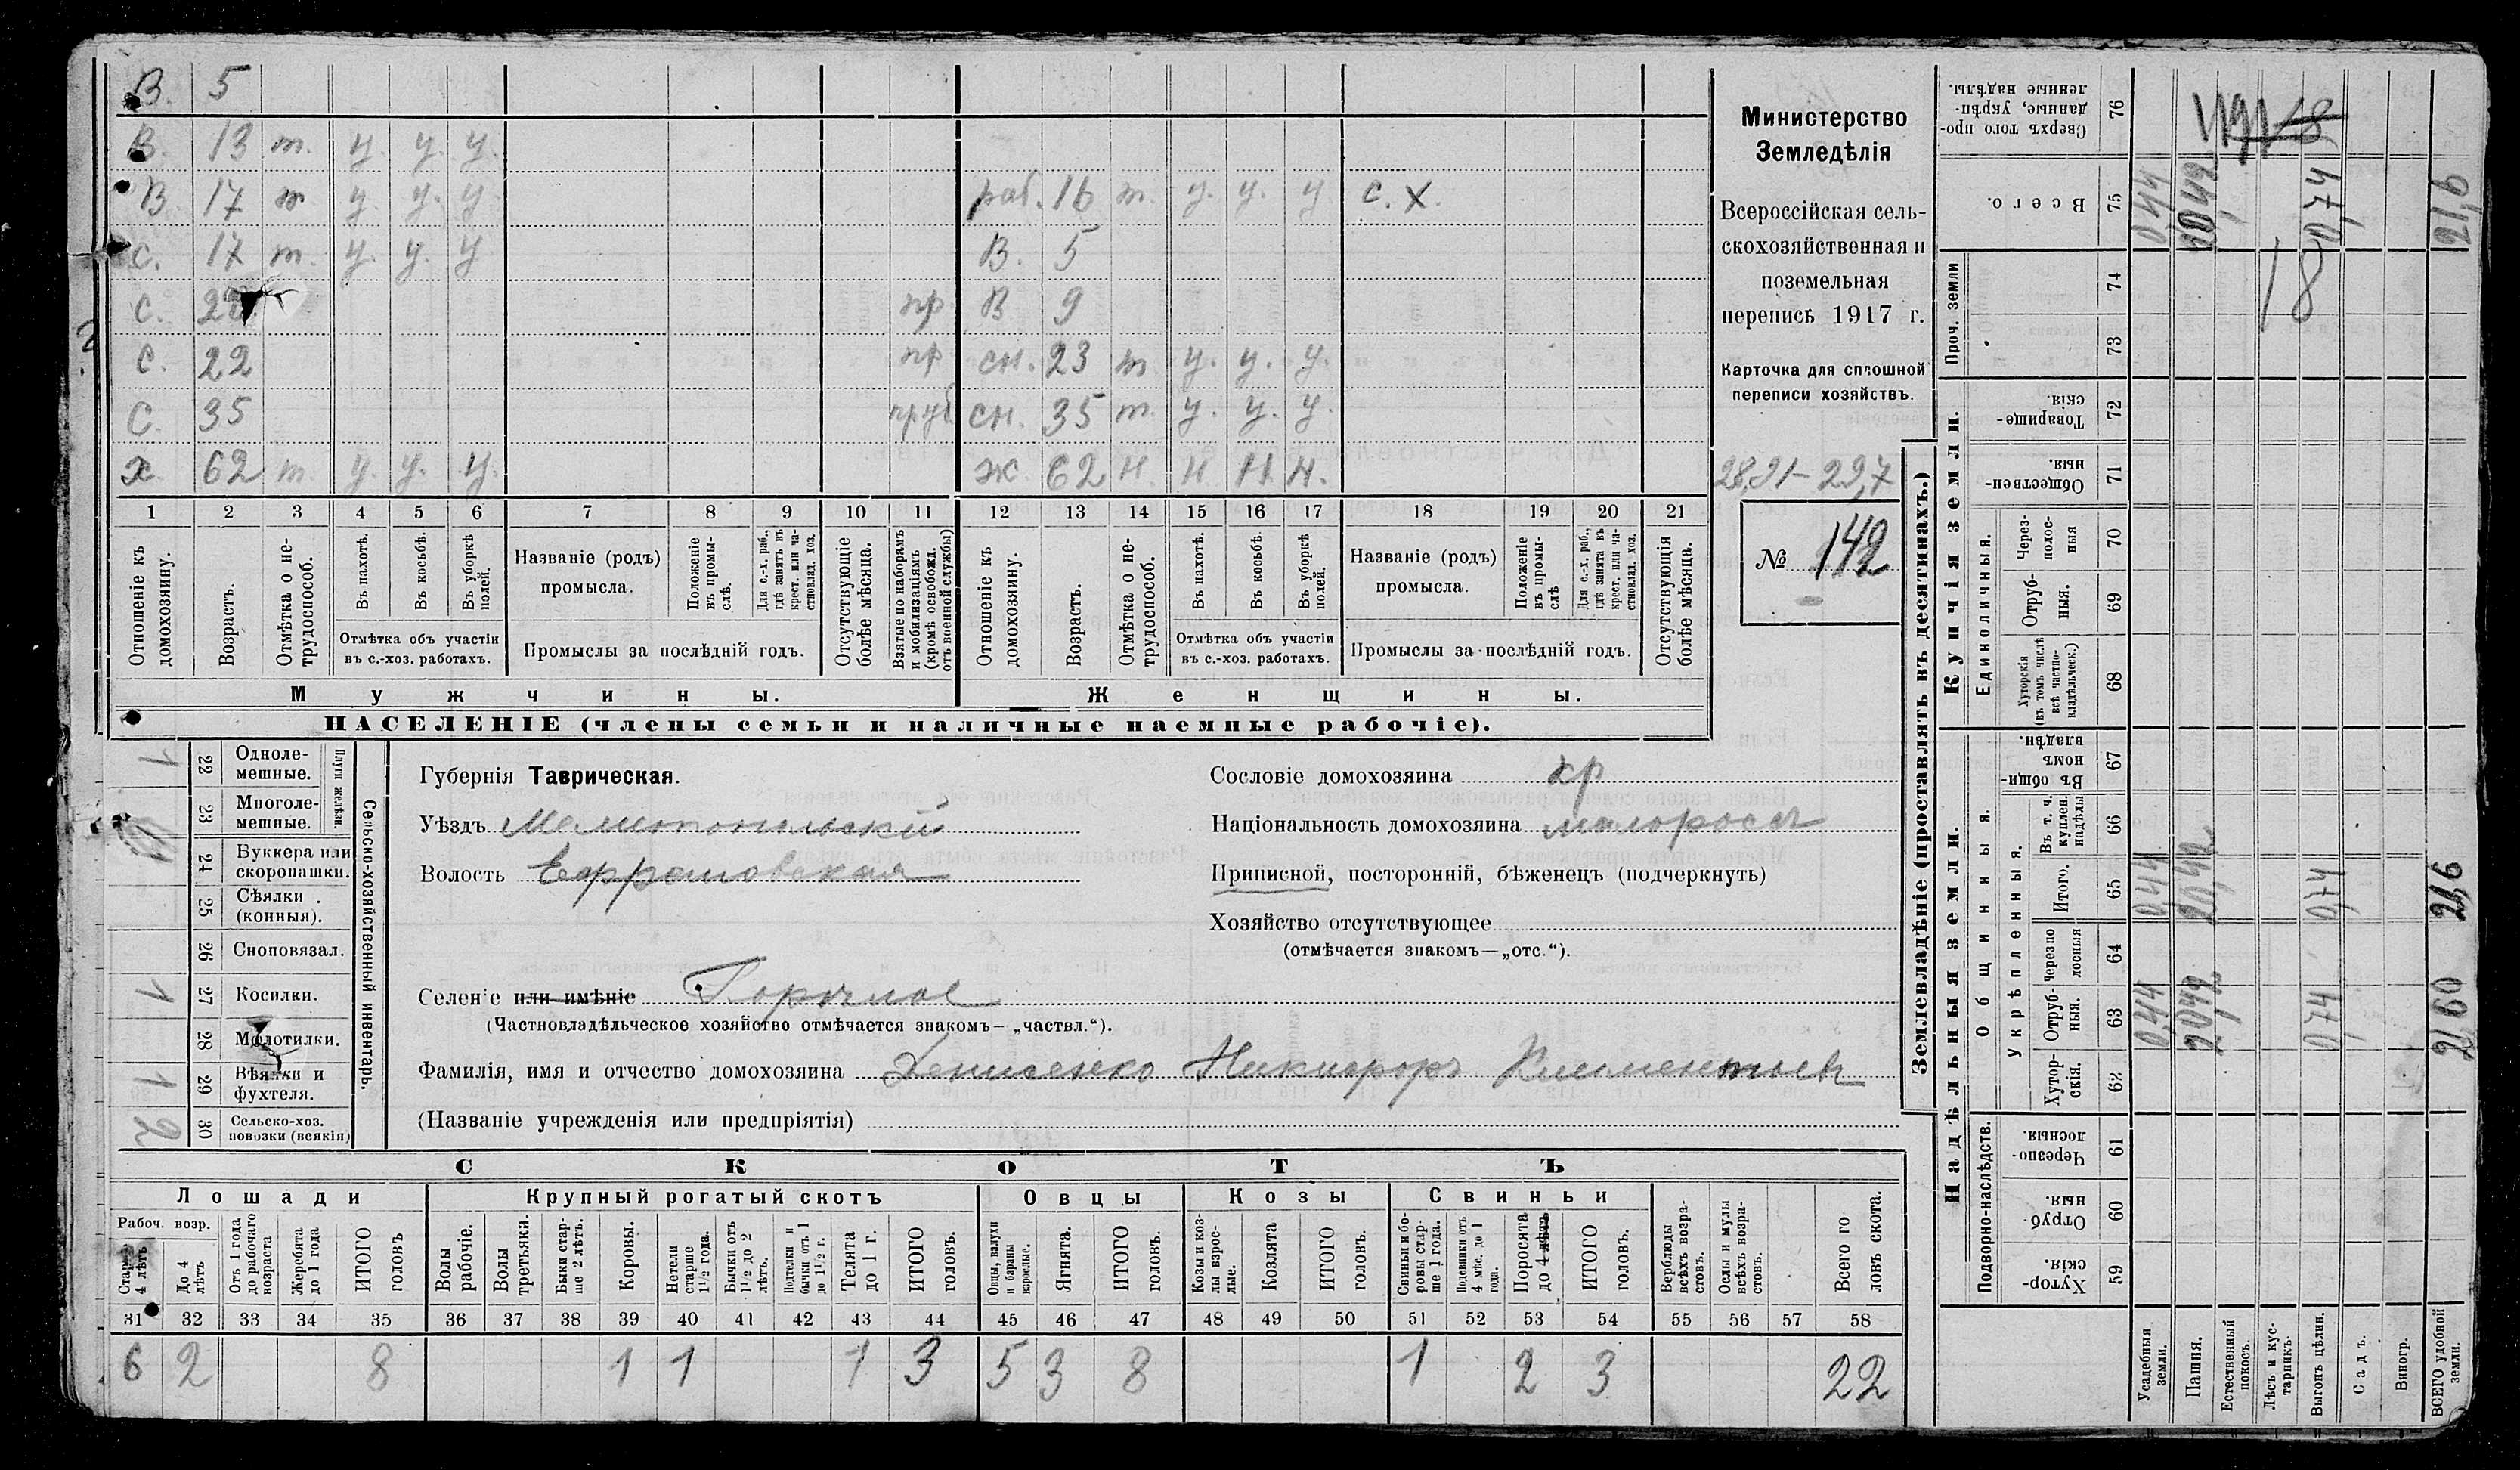 В. 5
В. 13 т. у. у. у.
В 17 т у. у. у раб. 16 т. у. у. у с. х.
с. 17 т. у. у. у В. 5
с. пр В 9
с. 22 пр сн. 23 т у. у. у.
с. 35 сн. 35 т. у. у. у.
х 62 т. у. у. у. ж. 62 н. н н. н.
1 2 3 4 5 6 7 8 9 10 11 12 13 14 15 16 17 18 19 20 21
Отношеніе къ домохозяину.
Возрастъ.
Отмѣтка о нетрудоспособ.
Въ пахотѣ.
Въ косьбѣ.
Въ уборкѣ полей.
Отмѣтка объ участіи
въ с.-хоз. работахъ.
Названіе (родъ)
промысла.
Положеніе въ промыслѣ.
Для с.-х. раб., гдѣ занятъ въ крест. или частновлад. хоз.
Промыслы за послѣдній годъ.
Отсутствующіе болѣе мѣсяца.
Взятые по наборамъ и мобилизаціямъ (кромѣ освобожд. отъ военной службы)
Отношеніе къ домохозяину.
Возрастъ.
Отмѣтка о нетрудоспособ.
Въ пахотѣ.
Въ косьбѣ.
Въ уборкѣ полей.
Отмѣтка объ участіи
въ с.-хоз. работахъ.
Названіе (родъ)
промысла.
Положеніе въ промыслѣ
Для с.-х. раб., гдѣ занята въ крест. или частновлад. хоз.
Промыслы за послѣдній годъ.
Отсутствующія болѣе мѣсяца.
Мужчины.
Женщины.
НАСЕЛЕНІЕ (члены семьи и наличные наемные рабочіе).
Министерство
Земледѣлія
Всероссійская сель-
скохозяйственная и
поземельная
перепись 1917 г.
Карточка для сплошной
переписи хозяйствъ.
28,91 — 22,7
№ 142
Сельско-хозяйственный инвентарь.
Плуги желѣзн.
1 22 Однолемешные.
23 Многолемешные.
24 Буккера или скоропашки.
25 Сѣялки (конныя).
26 Сноповязал.
1 27 Косилки.
28 Молотилки.
1 29 Вѣялки и фухтеля.
2 30 Сельско-хоз. повозки (всякія)
Губернія Таврическая.
Уѣздъ Мелитопольскій
Волость Ефремовская
Селеніе или имѣніе Горѣлое
(Частновладѣльческое хозяйство отмѣчается знакомъ— „частвл.“).
Фамилія, имя и отчество домохозяина Денисенко Никифоръ Климентьев
(Названіе учрежденія или предпріятія)
Сословіе домохозяина кр
Національность домохозяина малороссъ
Приписной, посторонній, бѣженецъ (подчеркнуть)
Хозяйство отсутствующее
(отмѣчается знакомъ—„отс.“).
СКОТЪ
Лошади Крупный рогатый скотъ Овцы Козы Свиньи
Рабоч. возр.
Старше 4 лѣтъ
До 4 лѣтъ
Отъ 1 года до рабочаго возраста
Жеребята до 1 года
ИТОГО головъ
Волы рабочіе.
Волы третьяки.
Быки старше 2 лѣтъ.
Коровы.
Нетели старше 1½ года.
Бычки отъ 1½ до 2 лѣтъ.
Подтелки и бычки отъ 1 до 1½ г.
Телята до 1 г.
ИТОГО головъ.
Овцы, валухи и бараны взрослые.
Ягнята.
ИТОГО головъ.
Козы и козлы взрослые.
Козлята
ИТОГО головъ.
Свиньи и боровы старше 1 года.
Подсвинки отъ 4 мѣс. до 1 года.
Поросята до 4 лѣтъ
ИТОГО головъ.
Верблюды всѣхъ возрастовъ.
Ослы и мулы всѣхъ возрастовъ.
Всего головъ скота.
31 32 33 34 35 36 37 38 39 40 41 42 43 44 45 46 47 48 49 50 51 52 53 54 55 56 57 58
6 2 8 1 1 1 3 5 3 8 1 2 3 22
Землевладѣніе (проставлять въ десятинахъ.)
Надѣльныя земли.
Купчія земли.
Подворно-наслѣдств.
Общинныя.
Укрѣпленныя.
Единоличныя.
Проч. земли
Хуторскія. 59
Отрубныя. 60
Черезполосныя. 61
Хуторскія. 62
Отрубныя. 63 0,44 20,42 0,74 21,60
Черезполосныя 64
Итого. 65 0,44 20,42 0,74 21,6
Въ т. ч. куплен. надѣлы 66
Въ общинномъ владѣн. 67
Хуторскія (въ томъ числѣ всѣ частновладѣльческ.) 68
Отрубныя. 69
Черезполосныя 70
Общественныя. 71
Товарищескія. 72
73
74 18
Всего. 75 0,44 20,42 0,74 21,6
Сверхъ того проданные, укрѣпленные надѣлы. 76
Усадебныя земли.
Пашня.
Естественный покосъ.
Лѣсъ и кустарникъ.
Выгонъ цѣлин.
Садъ.
Виногр.
ВСЕГО удобной земли.